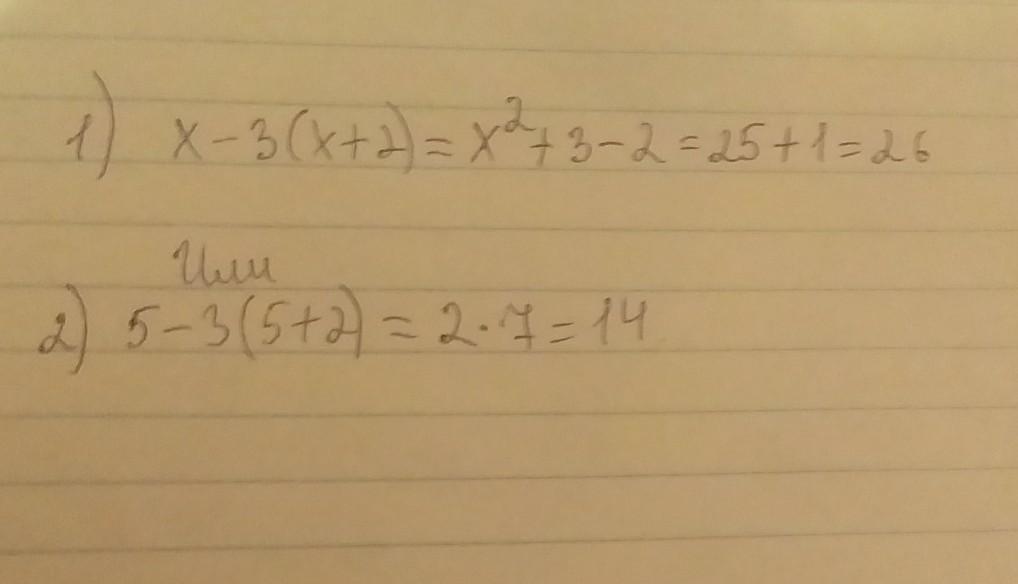 1) x-3(x+2)=x²+3-2=25+1=26
Или
2) 5-3(5+2)=2·7=14